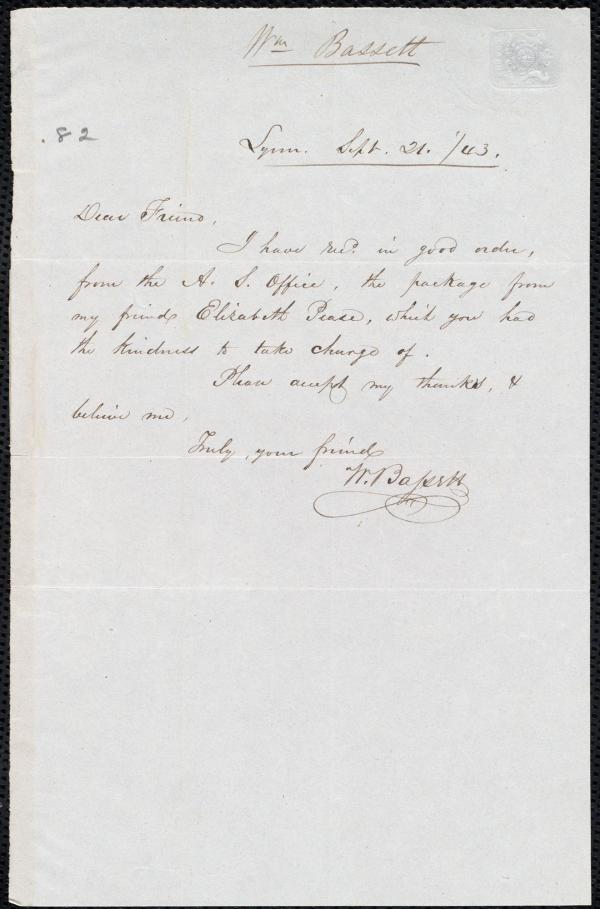 Wm Bassett
.82
Lynn. Sept. 21. /43.
Dear Friend,
I have recd. in good order,
from the A. S. Office, the package from
my friend Elizabeth Pease, which you had
the kindness to take charge of.
Please accept my thanks, &
believe me,
Truly, your friend
W. Bassett